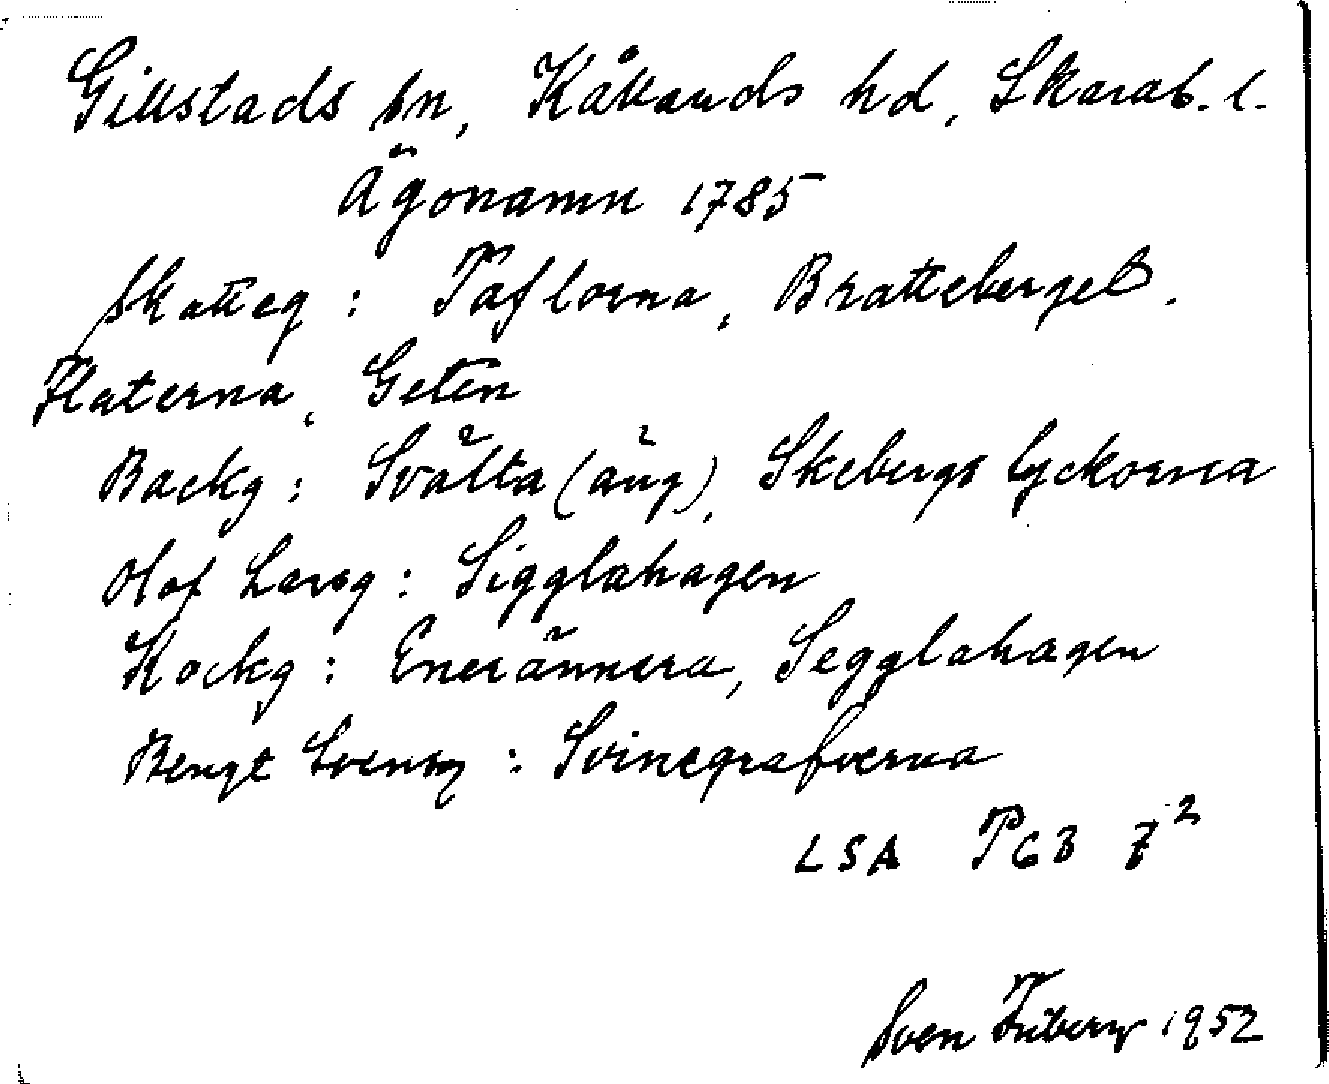 Gillstads sn, Kållands hd, Skarab. l.
Ägonamn 1785
Skatteg: Taflorna, Bratteberget.
Flaterna, Geten
Backg: Svälta (äng), Skebergs lyckorna
Olof Larsg: Sigglahagen
Kockg: Enerännera, Segglahagen
Bengt Svensg: Svinegrafverna
LSA P63 7²
Sven Friberg 1952